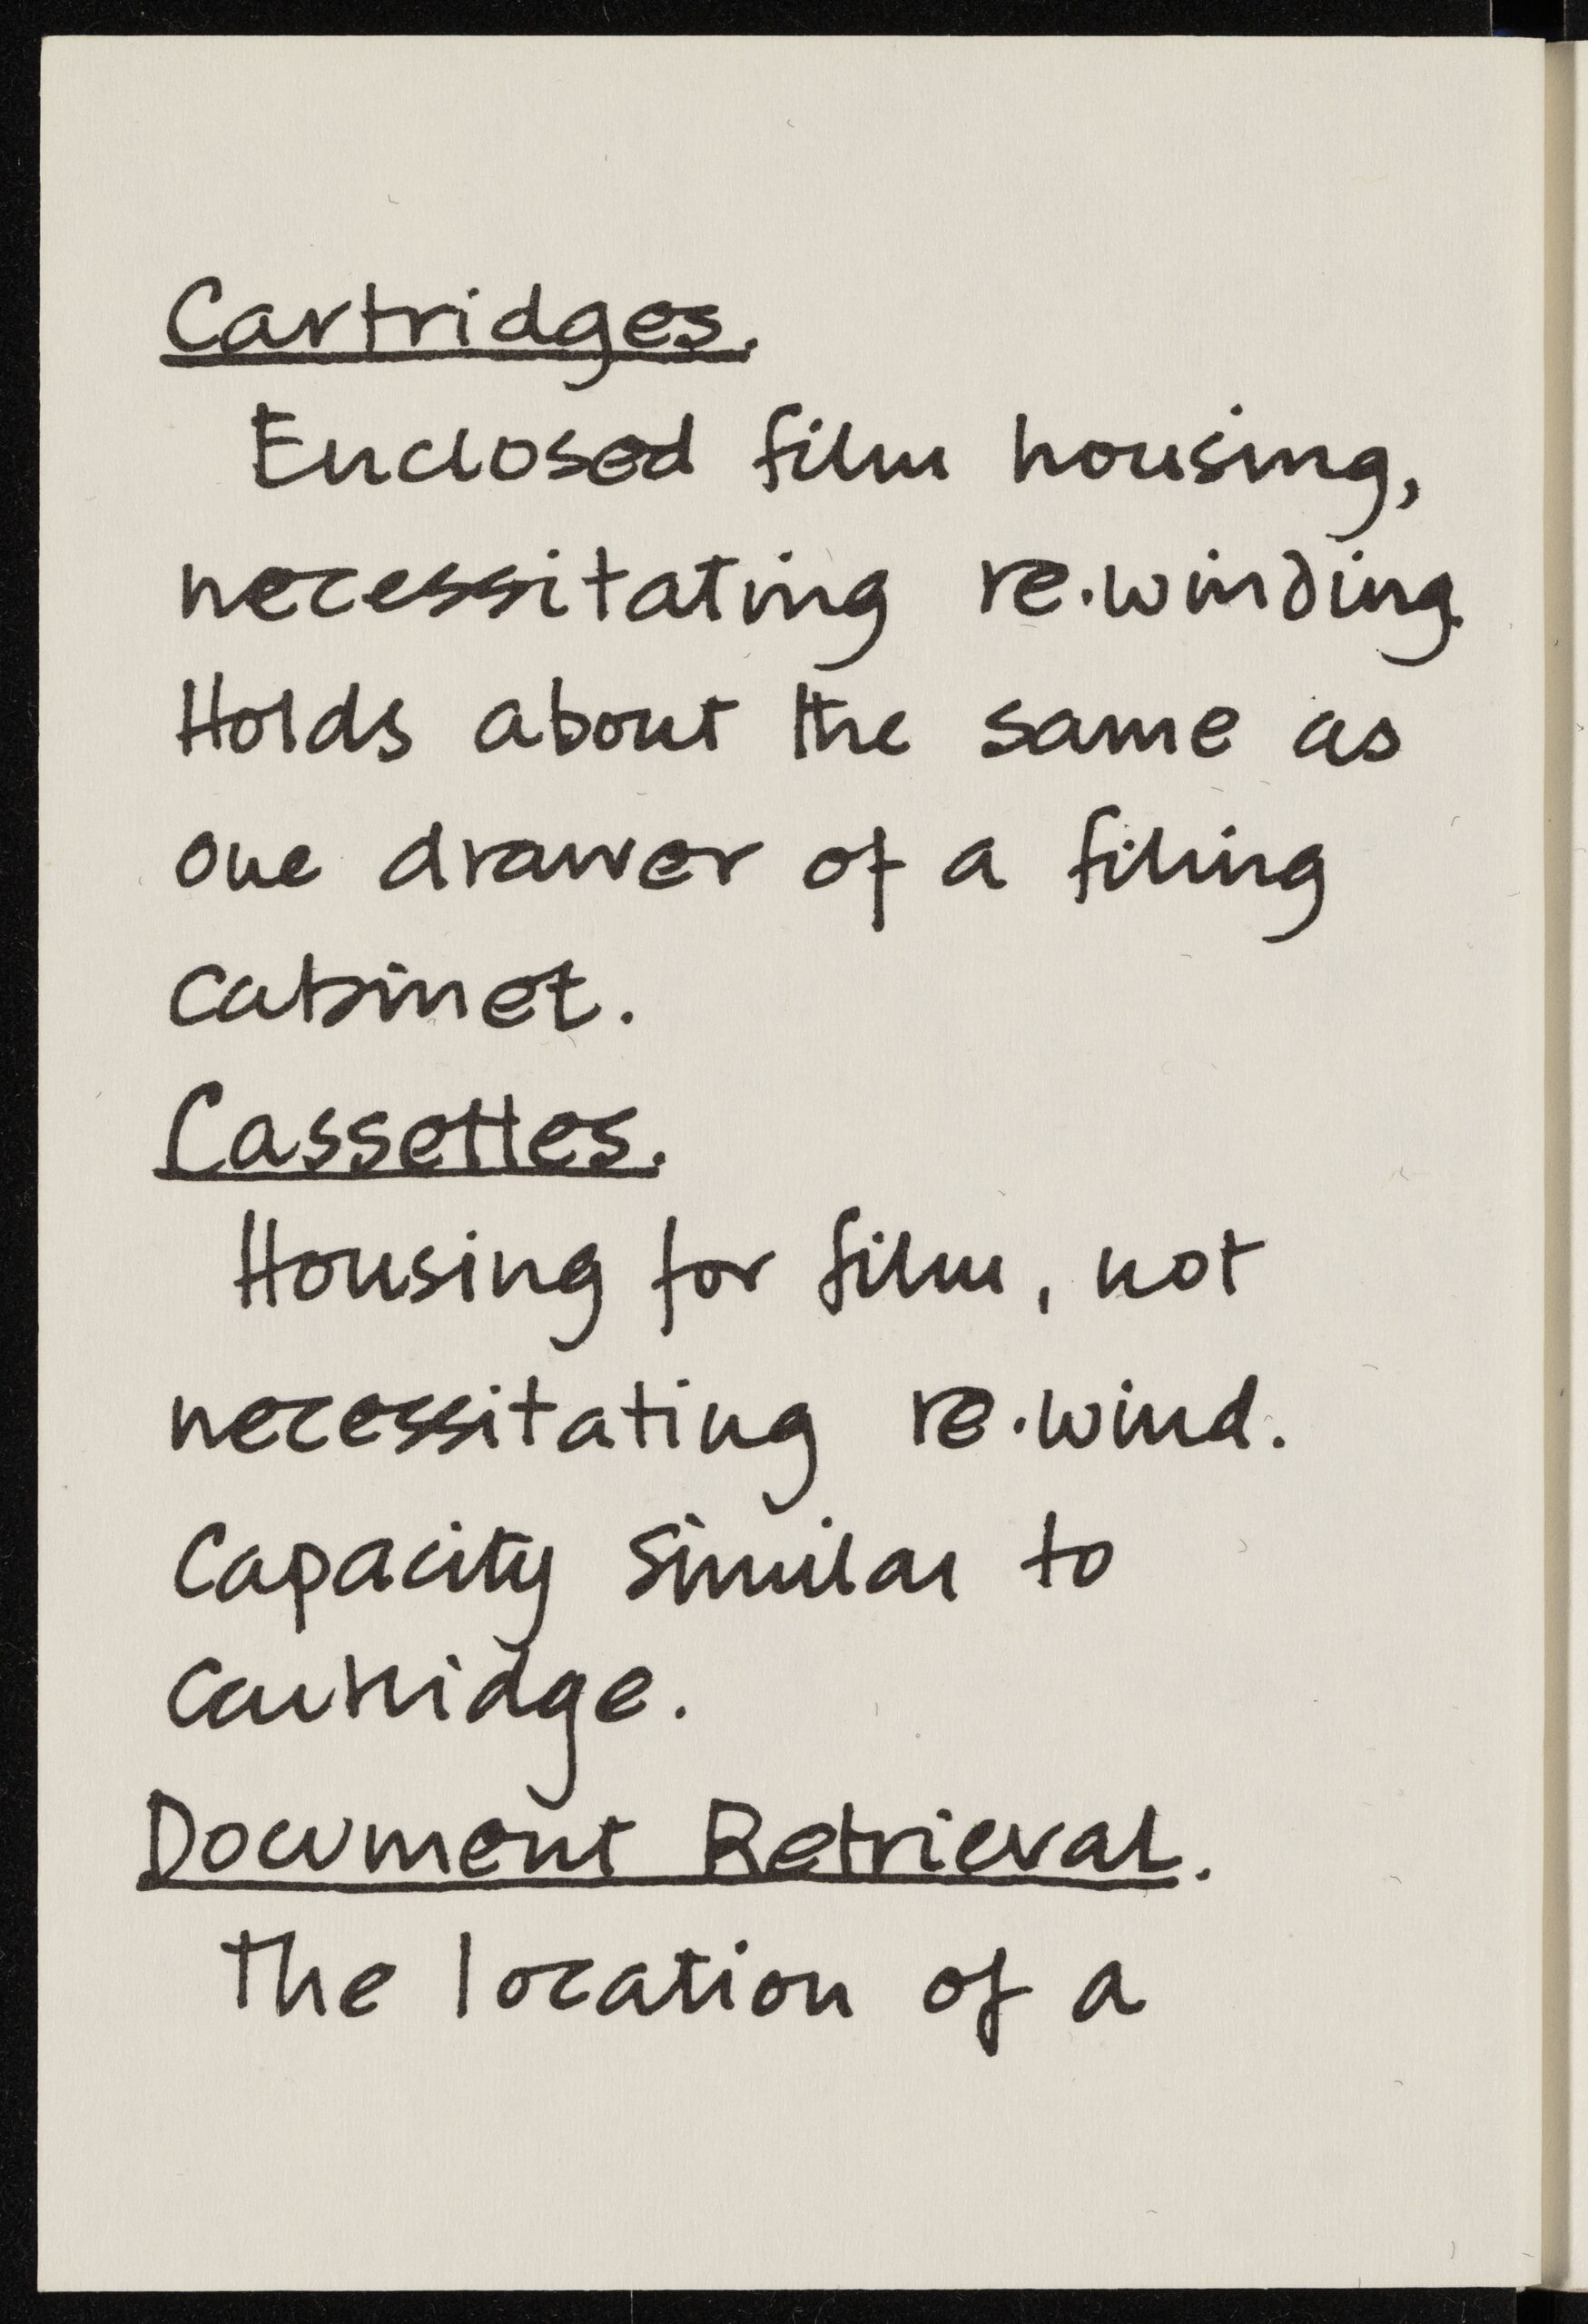 Cartridges.
Enclosed film housing,
necessitating re·winding.
Holds about the same as
one drawer of a filing
cabinet.
Cassettes.
Housing for film, not
necessitating re·wind.
Capacity similar to
cartridge.
Document Retrieval.
The location of a